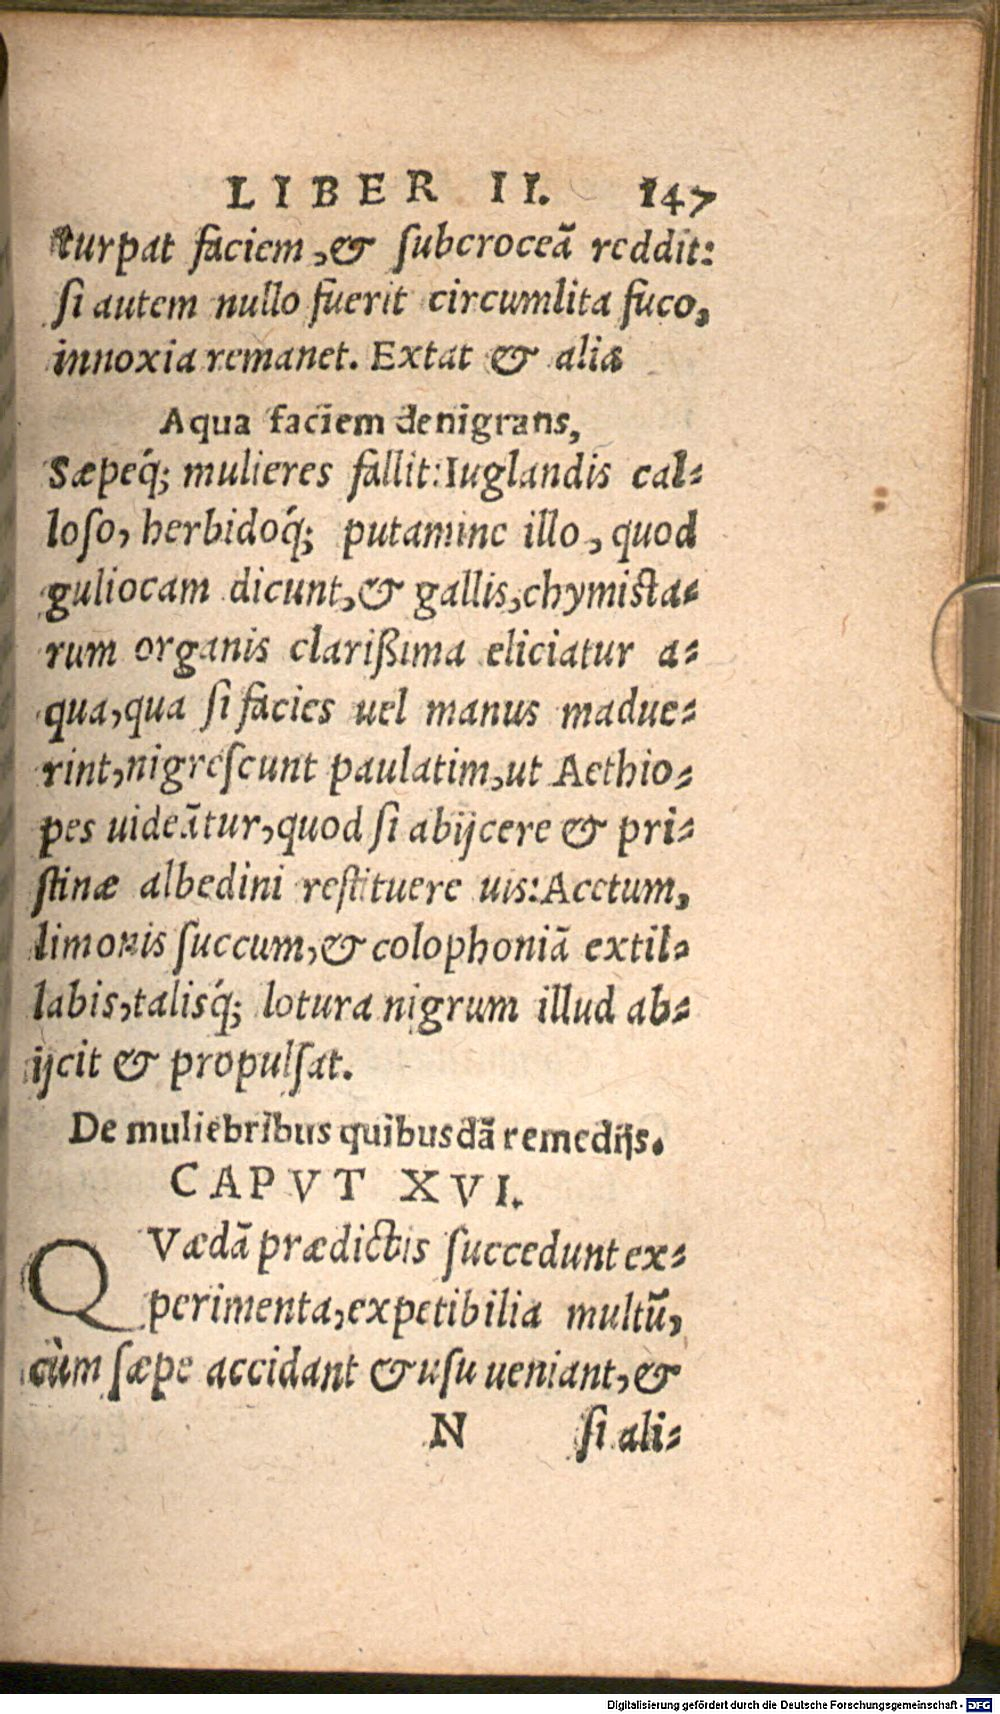 LIBER II. 147
turpat faciem, & ſubcroceã reddit:
ſi autem nullo fuerit circumlita fuco,
innoxia remanet. Extat & alia
Aqua faciem denigrans,
Sæpeq́; mulieres fallit: Iuglandis cal-
loſo, herbidoq́; putamine illo, quod
guliocam dicunt, & gallis, chymista-
rum organis clarißima eliciatur a-
qua, qua ſi facies uel manus madue-
rint, nigreſcunt paulatim, ut Aethio-
pes uideãtur, quod ſi abijcere & pri-
ſtinæ albedini reſtituere uis: Acetum,
limonis ſuccum, & colophoniã extil-
labis, talisq́; lotura nigrum illud ab-
ijcit & propulſat.
De muliebribus quibusdã remedijs.
CAPVT XVI.
QVædã prædictis ſuccedunt ex-
perimenta, expetibilia multũ,
cùm ſæpe accidant & uſu ueniant, &
N ſi ali-
Digitalisierung gefördert durch die Deutsche Forschungsgemeinschaft - DFG